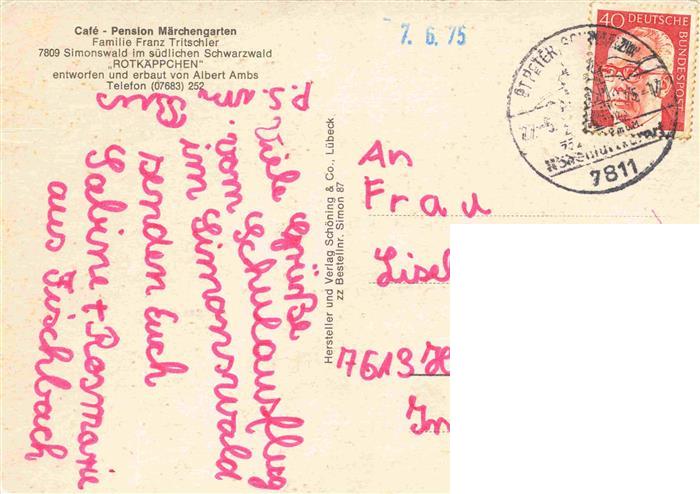 Café - Pension Märchengarten
Familie Franz Tritschler
7809 Simonswald im südlichen Schwarzwald
„ROTKÄPPCHEN"
entworfen und erbaut von Albert Ambs
Telefon (07683) 252
7. 6. 75
40 DEUTSCHE
BUNDESPOST
ST PETER
7811
Viele Grüße
vom Schulausflug
im Simonswald
senden Euch
Sabine + Rosmarie
aus Fischbach
Hersteller und Verlag Schöning & Co., Lübeck
zz Bestellnr. Simon 87
An
Frau
Lisel
7613